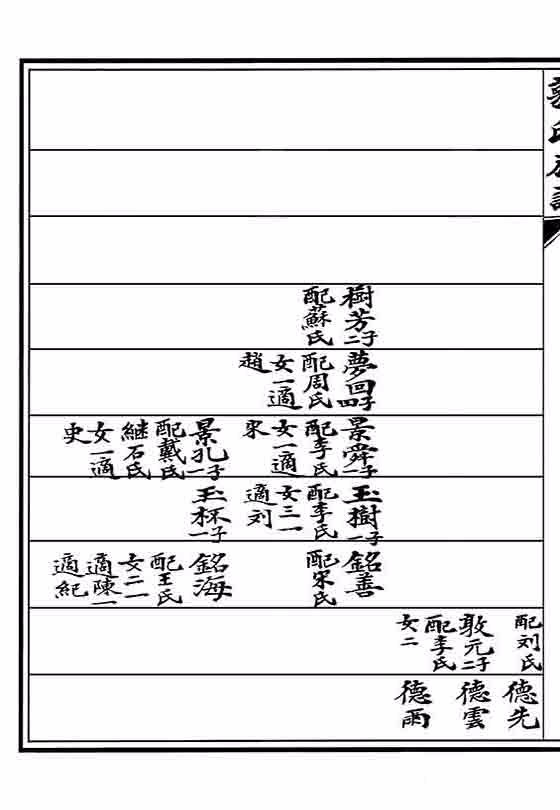 族
樹芳二子
配蘇氏
夢回四子
配周氏
女一適
趙
景舜一子
配李氏
女一適
宋
景孔一子
配戴氏
継石氏
女一適
史
玉樹一子
配李氏
女三一
適刘
玉杯一子
銘善
配宋氏
銘海
配王氏
女二一
適陳一
適紀
配刘氏
敢元二子
配李氏
女二
德先
德雲
德雨